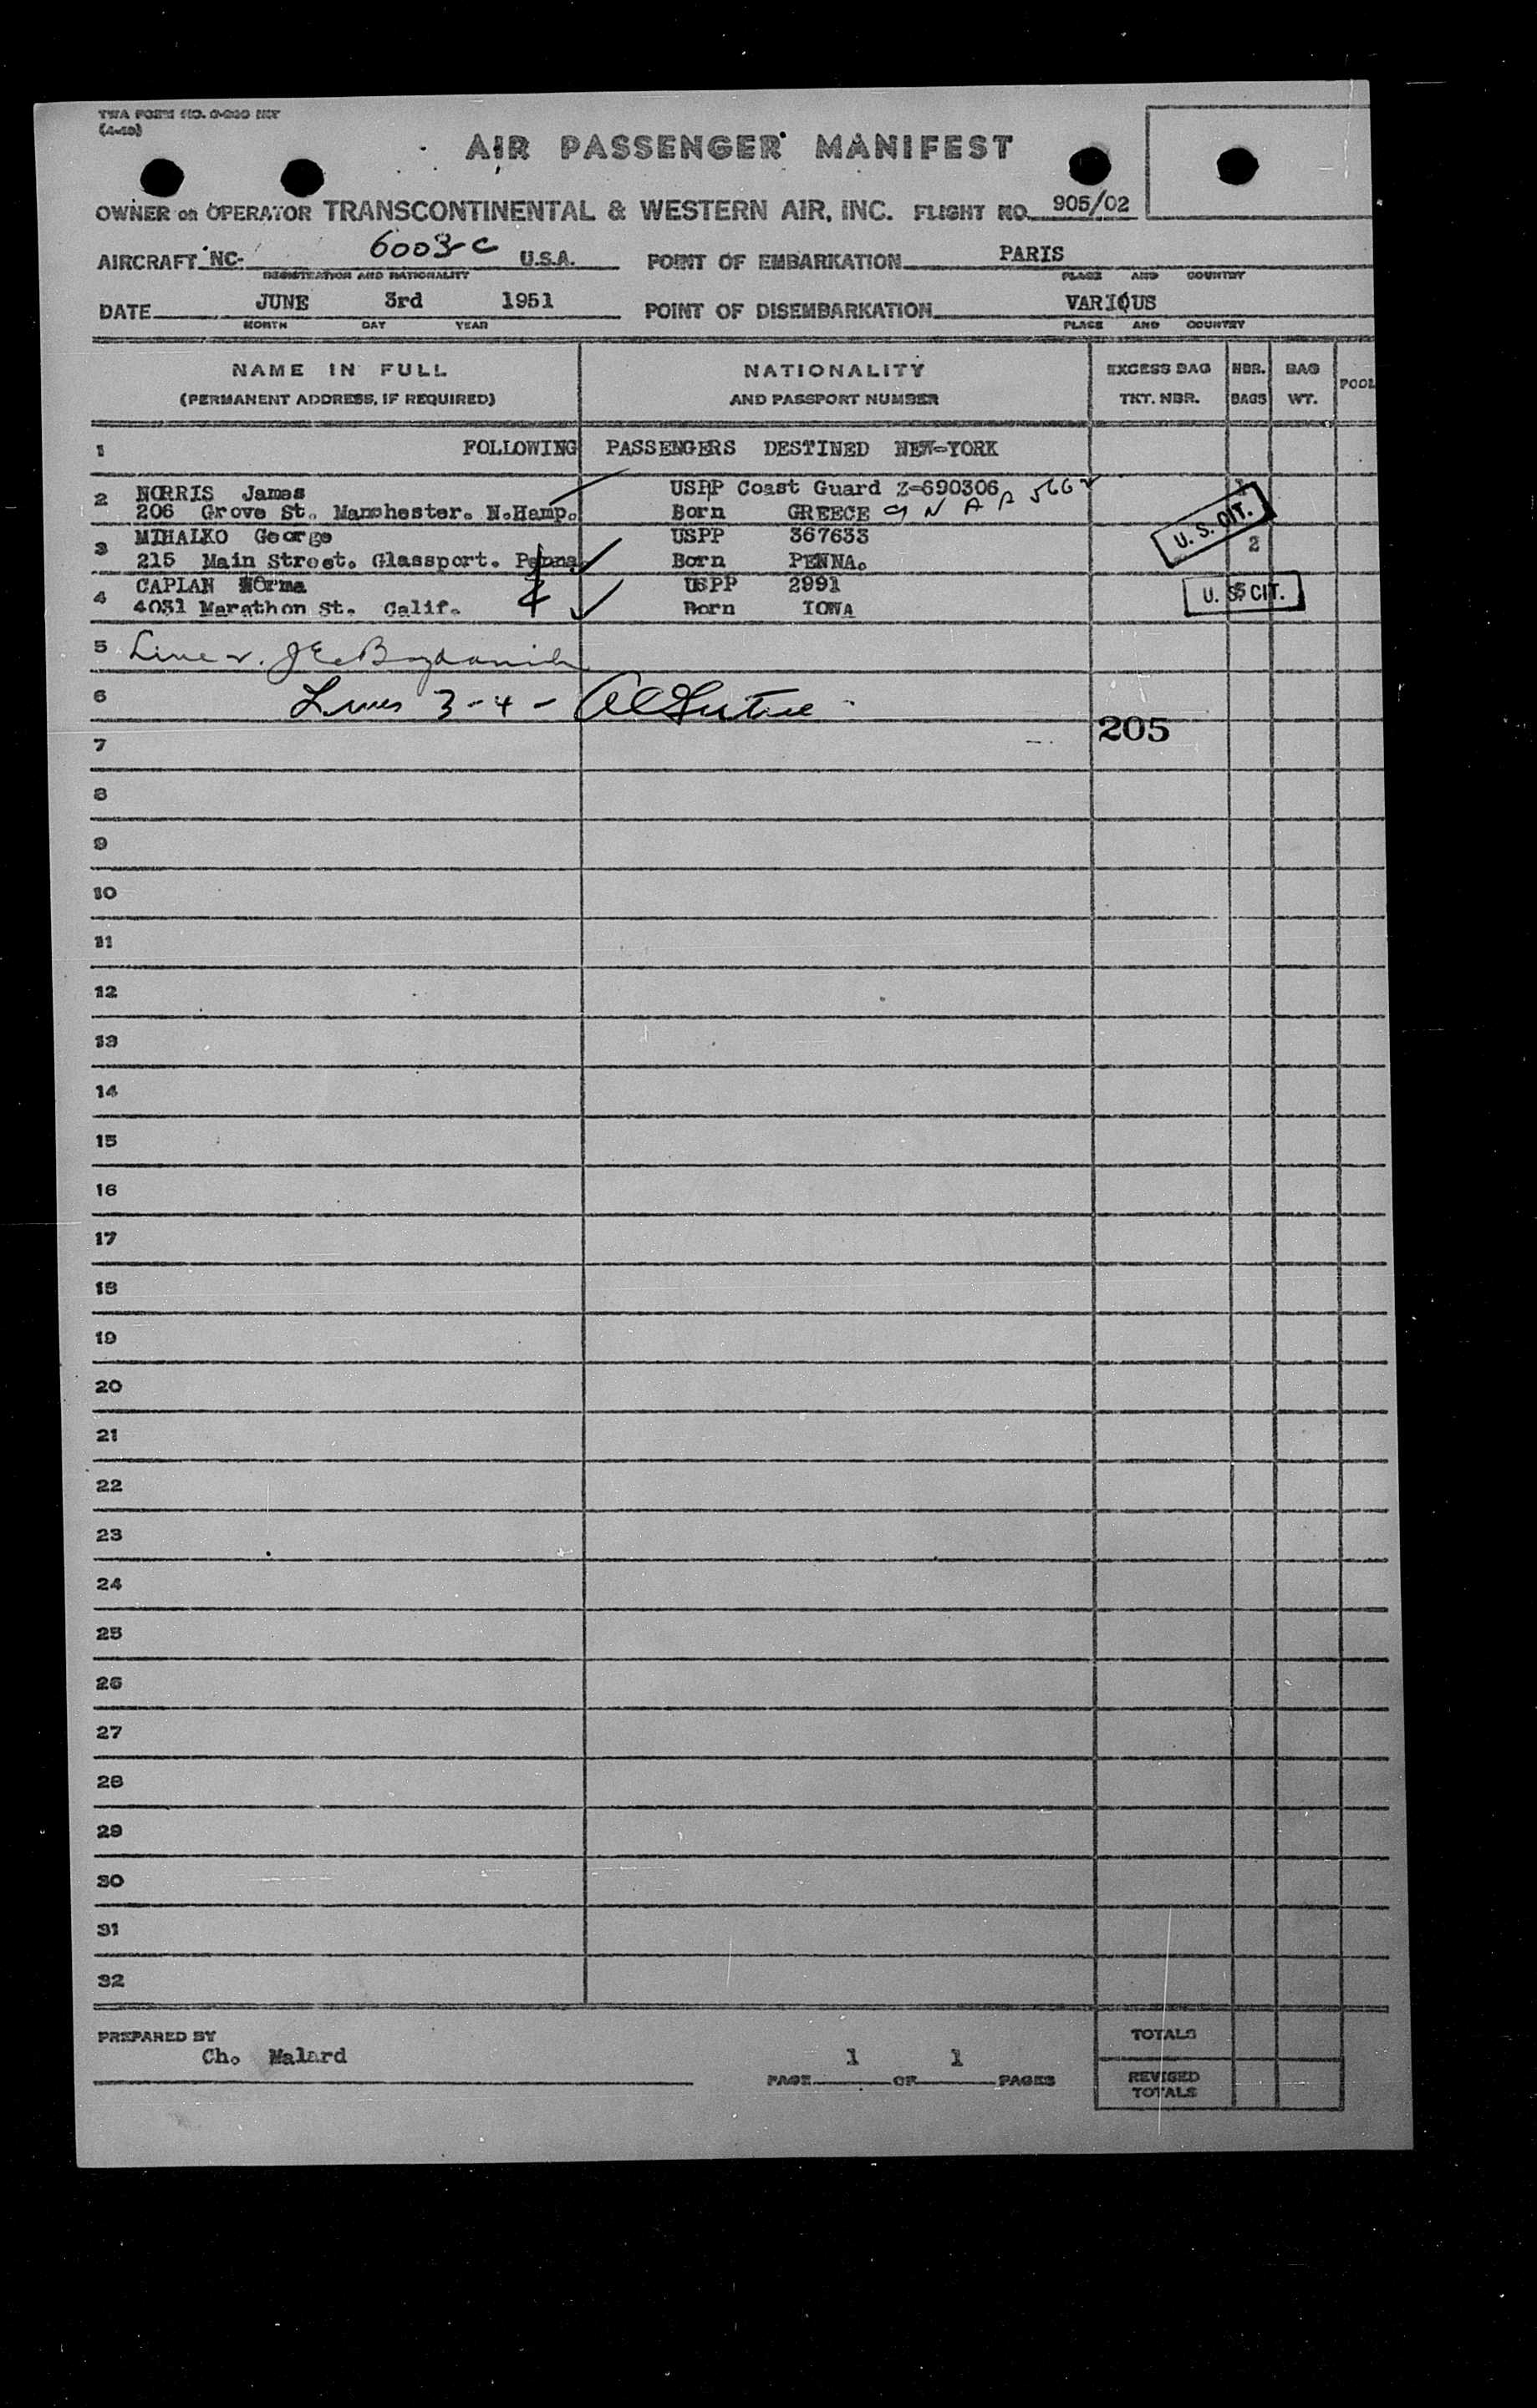 TWA FORM NO. O-220 INT
(4-49)
AIR PASSENGER MANIFEST
OWNER OR OPERATOR TRANSCONTINENTAL & WESTERN AIR, INC. FLIGHT NO. 905/02
AIRCRAFT NC- 6003-C U.S.A. POINT OF EMBARKATION PARIS
REGISTRATION AND NATIONALITY PLACE AND COUNTRY
DATE JUNE 3rd 1951 POINT OF DISEMBARKATION VARIOUS
MONTH DAY YEAR PLACE AND COUNTRY
NAME IN FULL NATIONALITY EXCESS BAG NBR. BAG POOL
(PERMANENT ADDRESS, IF REQUIRED) AND PASSPORT NUMBER TKT. NBR. BAGS WT.
1 FOLLOWING PASSENGERS DESTINED NEW-YORK
2 NORRIS James USPP Coast Guard Z-690306 1
206 Grove St. Manchester. N.Hamp. Born GREECE
U. S. CIT.
3 MIHALKO George USPP 367633 2
215 Main Street. Glassport. Penna Born PENNA.
4 CAPLAN Norma USPP 2991
4031 Marathon St. Calif. Born IOWA
U. S. CIT.
5 Line
6 Lines 3-4 -
205
7
8
9
10
11
12
13
14
15
16
17
18
19
20
21
22
23
24
25
26
27
28
29
30
31
32
PREPARED BY TOTALS
Ch. Malard 1 1
PAGE OF PAGES REVISED
TOTALS